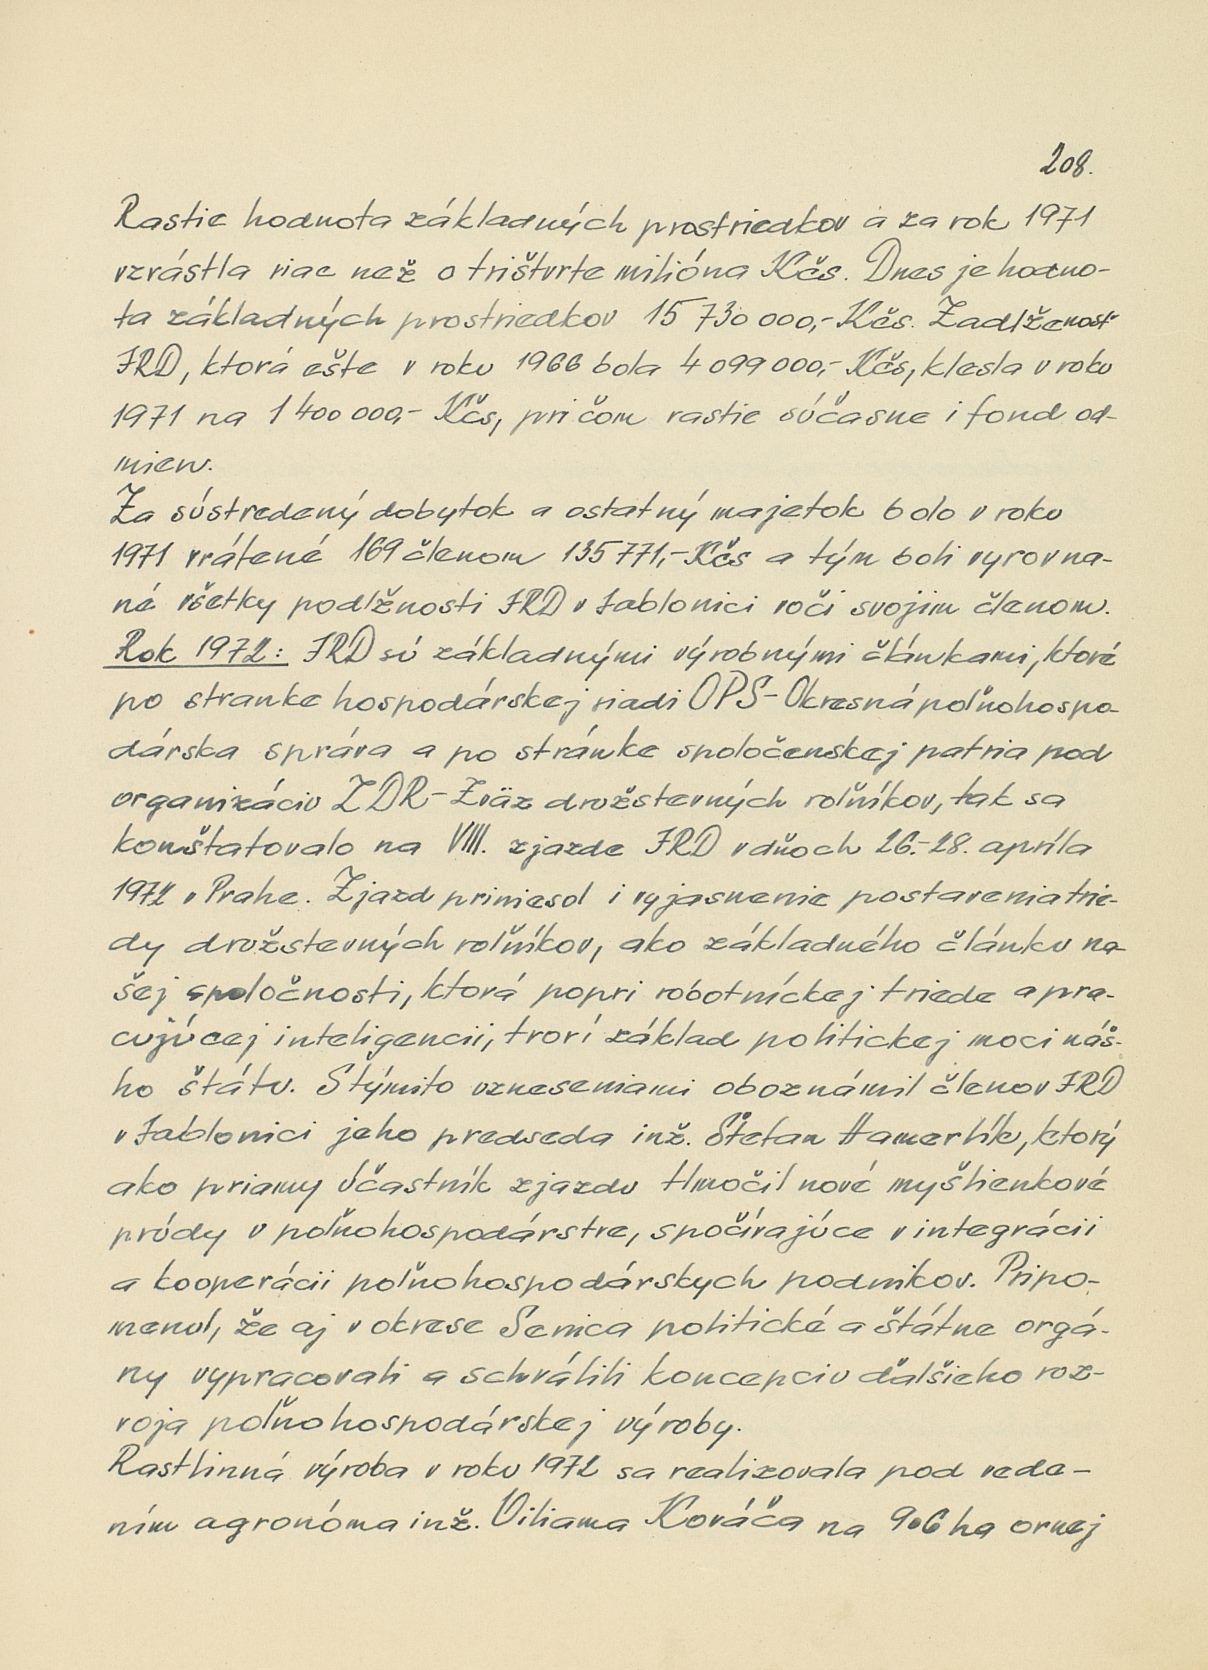 208.
Rastie hodnota základných prostriedkov a za rok 1971
vzrástla viac než o trištvrte milióna Kčs. Dnes je hodno-
ta základných prostriedkov 15 730 000,- Kčs. Zadlženosť
JRD, ktorá ešte v roku 1966 bola 4 099 000,- Kčs, klesla v roku
1971 na 1 400 000,- Kčs, pričom rastie súčasne i fond od-
mien.
Za sústredený dobytok a ostatný majetok bolo v roku
1971 vrátené 169 členom 135 771,- Kčs a tým boli vyrovna-
né všetky podlžnosti JRD v Jablonici voči svojim členom.
Rok 1972: JRD sú základnými výrobnými článkami, ktoré
po stranke hospodárskej riadi OPS - Okresná poľnohospo-
dárska správa a po stránke spoločenskej patria pod
organizáciu ZDR - Zväz družstevných roľníkov, tak sa
konštatovalo na VIII. zjazde JRD v dňoch 26.-28. apríla
1972 v Prahe. Zjazd priniesol i vyjasnenie postavenia trie-
dy družstevných roľníkov, ako základného článku na-
šej spoločnosti, ktorá popri robotníckej triede a pra-
cujúcej inteligencii, tvorí základ politickej moci náš-
ho štátu. S týmito uzneseniami oboznámil členov JRD
v Jablonici jeho predseda inž. Štefan Hamerlík, ktorý
ako priamy účastník zjazdu tlmočil nové myšlienkové
prúdy v poľnohospodárstve, spočívajúce v integrácii
a kooperácii poľnohospodárskych podnikov. Pripo-
menul, že aj v okrese Senica politické a štátne orgá-
ny vypracovali a schválili koncepciu ďalšieho roz-
voja poľnohospodárskej výroby.
Rastlinná výroba v roku 1972 sa realizovala pod vede-
ním agronóma inž. Viliama Kováča na 906 ha ornej